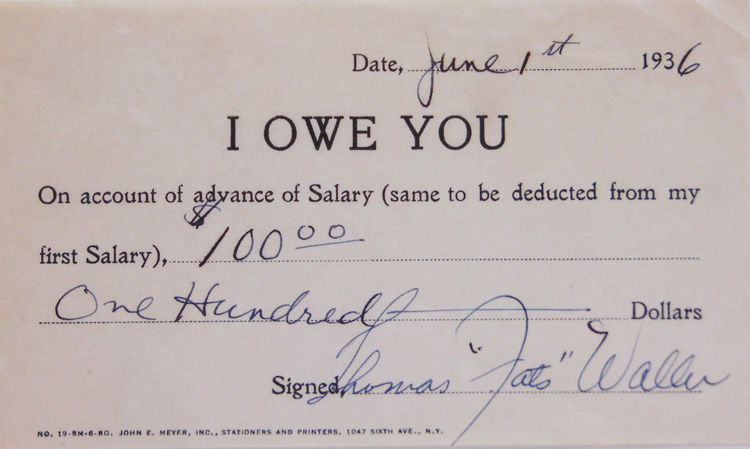 Date, June 1st 1936
I OWE YOU
On account of advance of Salary (same to be deducted from my
first Salary), $100 00
One Hundred Dollars
Signed, Thomas "Fats" Waller
NO. 19-5M-6-RO. JOHN E. MEYER, INC., STATIONERS AND PRINTERS, 1047 SIXTH AVE., N.Y.